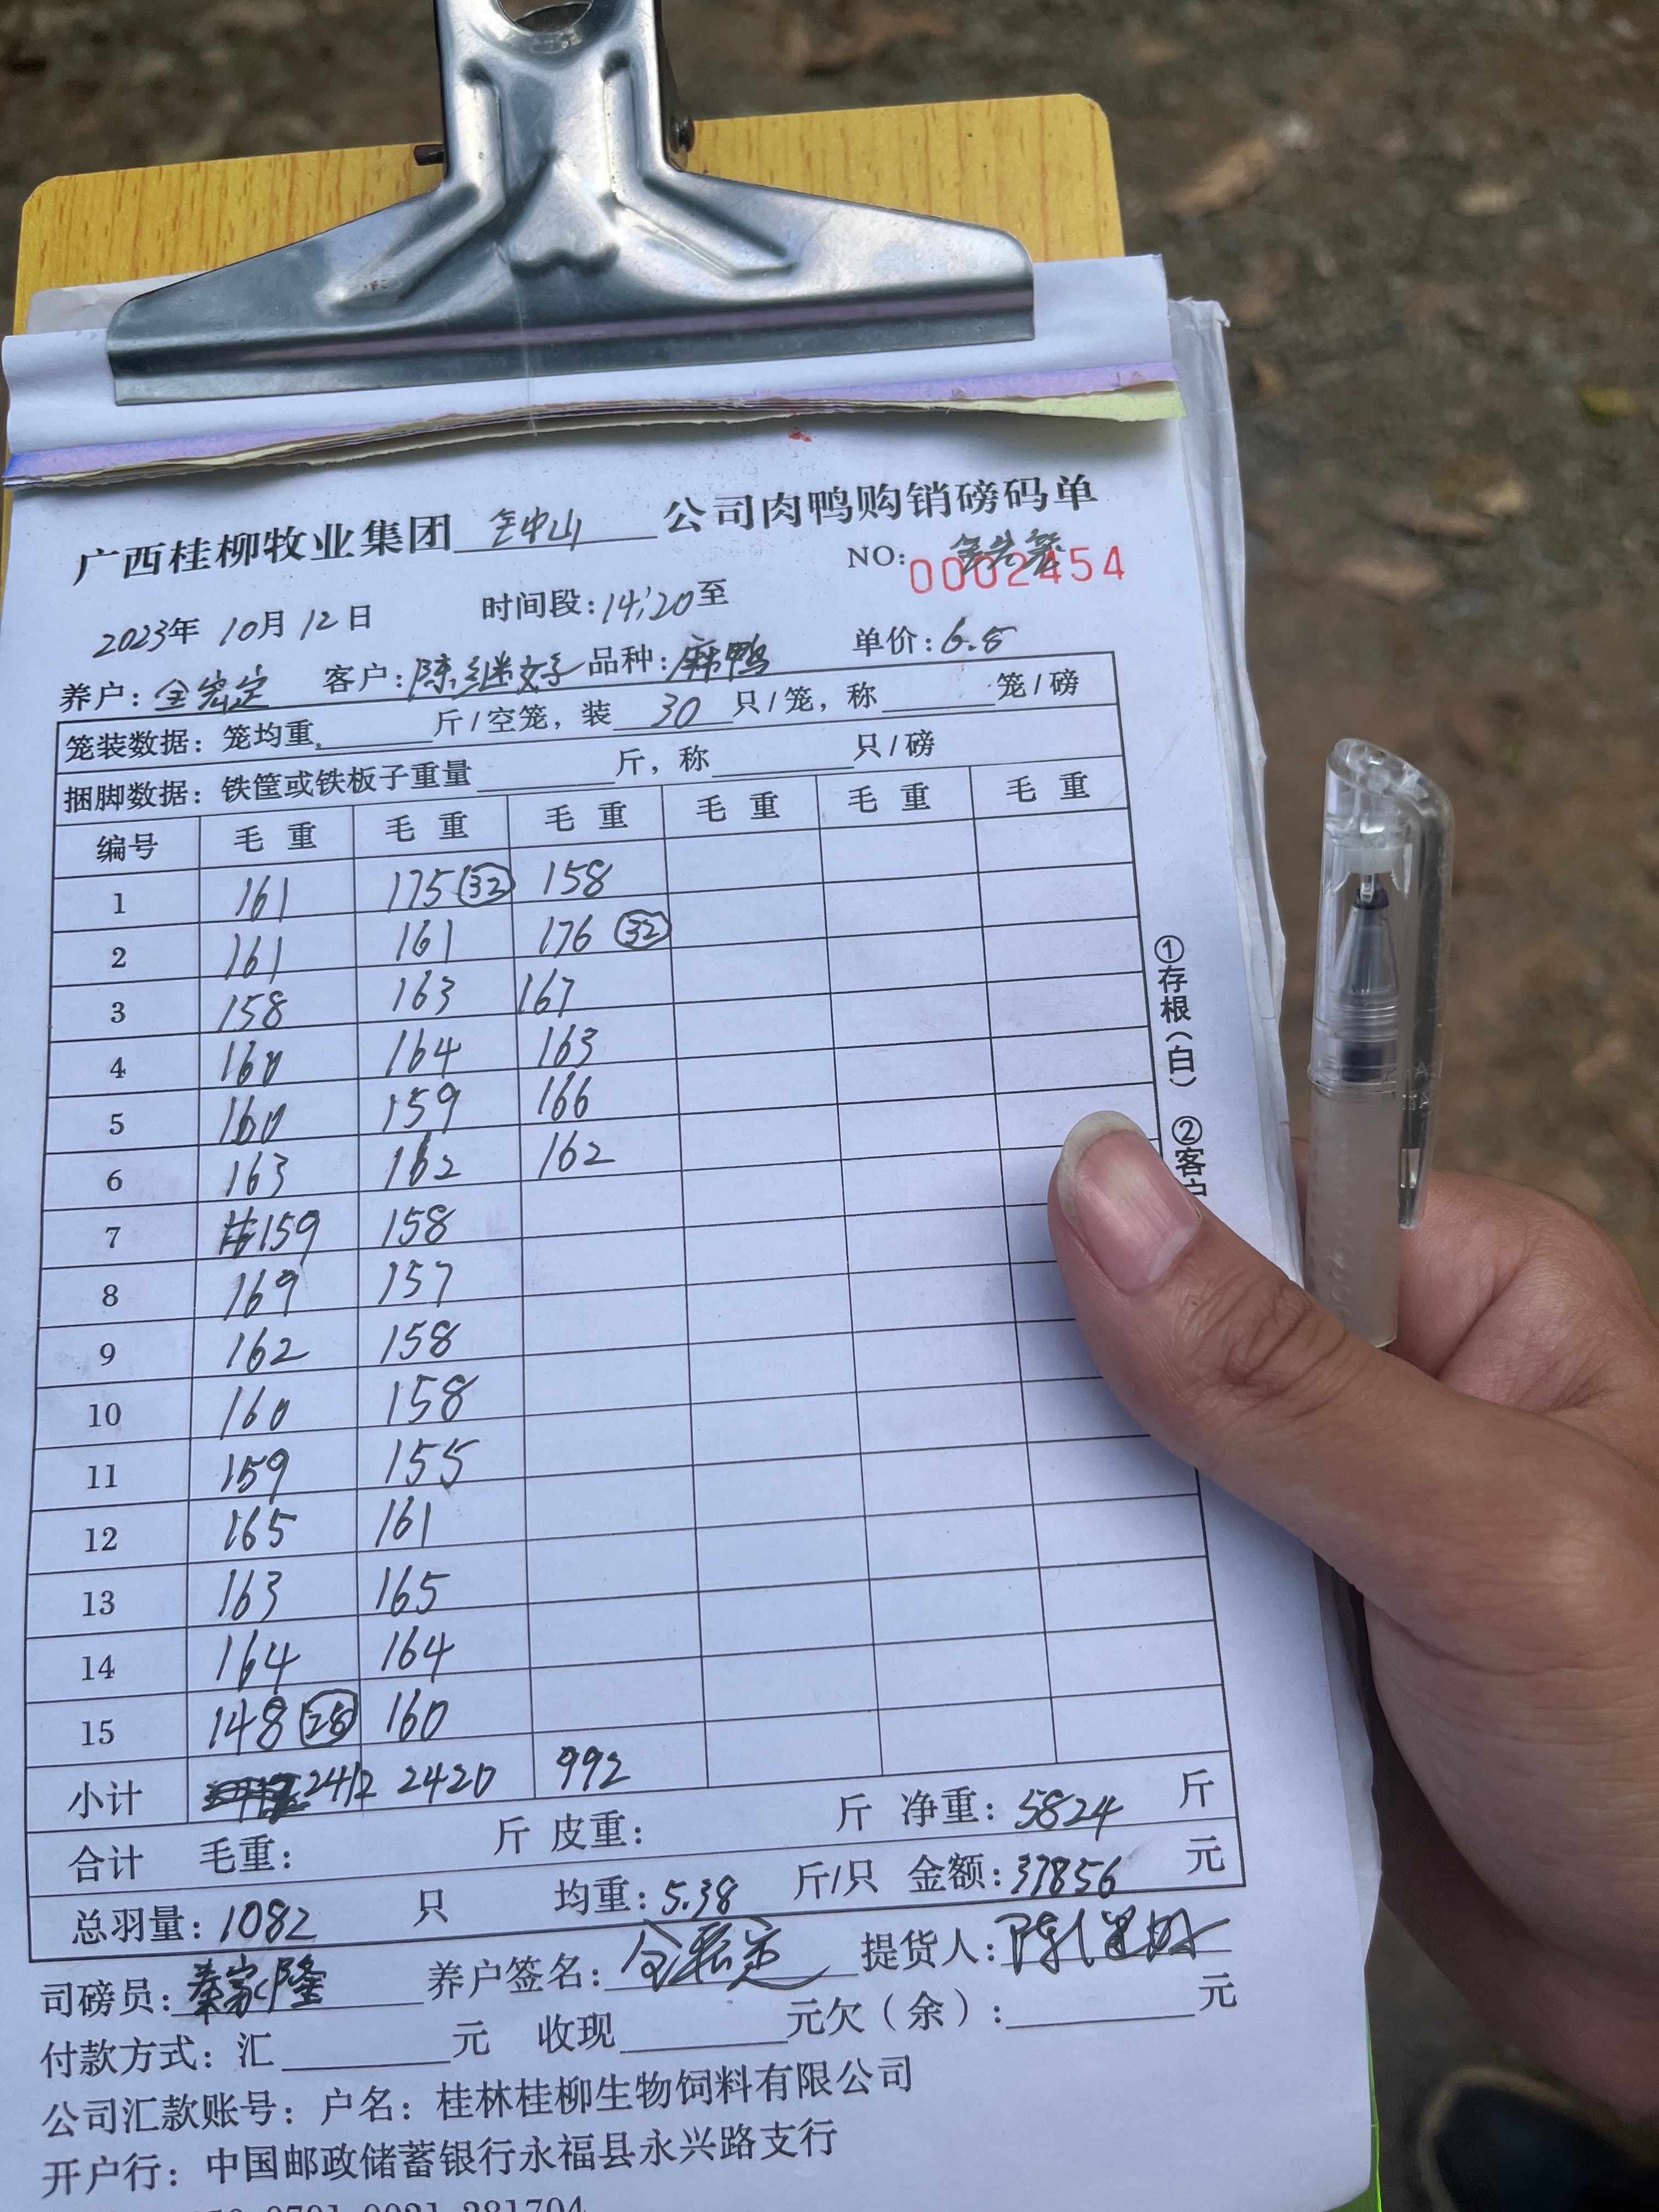 广西桂柳牧业集团 全中山 公司肉鸭购销磅码单
NO: 0002454
2023年 10月 12日 时间段:14:20至
养户: 全宏定 客户: 陈继好 品种: 麻鸭 单价: 6.5
笼装数据: 笼均重 斤/空笼, 装 30 只/笼, 称 笼/磅
捆脚数据: 铁筐或铁板子重量 斤, 称 只/磅
编号 毛重 毛重 毛重 毛重 毛重 毛重
1 161 175 32 158
2 161 161 176 32
3 158 163 167
4 160 164 163
5 160 159 166
6 163 162 162
7 159 158
8 169 157
9 162 158
10 160 158
11 159 155
12 165 161
13 163 165
14 164 164
15 148 28 160
小计 2412 2420 992
合计 毛重: 斤 皮重: 斤 净重: 5824 斤
总羽量: 1082 只 均重: 5.38 斤/只 金额: 37856 元
司磅员: 秦家隆 养户签名: 全宏定 提货人: 陈继好
付款方式: 汇 元 收现 元欠(余): 元
公司汇款账号: 户名: 桂林桂柳生物饲料有限公司
开户行: 中国邮政储蓄银行永福县永兴路支行
①存根(白) ②客户